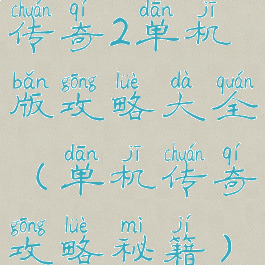 chuán qí dān jī
传奇2单机
bǎn gōng luè dà quán
版攻略大全
dān jī chuán qí
（单机传奇
gōng luè mì jí
攻略秘籍）